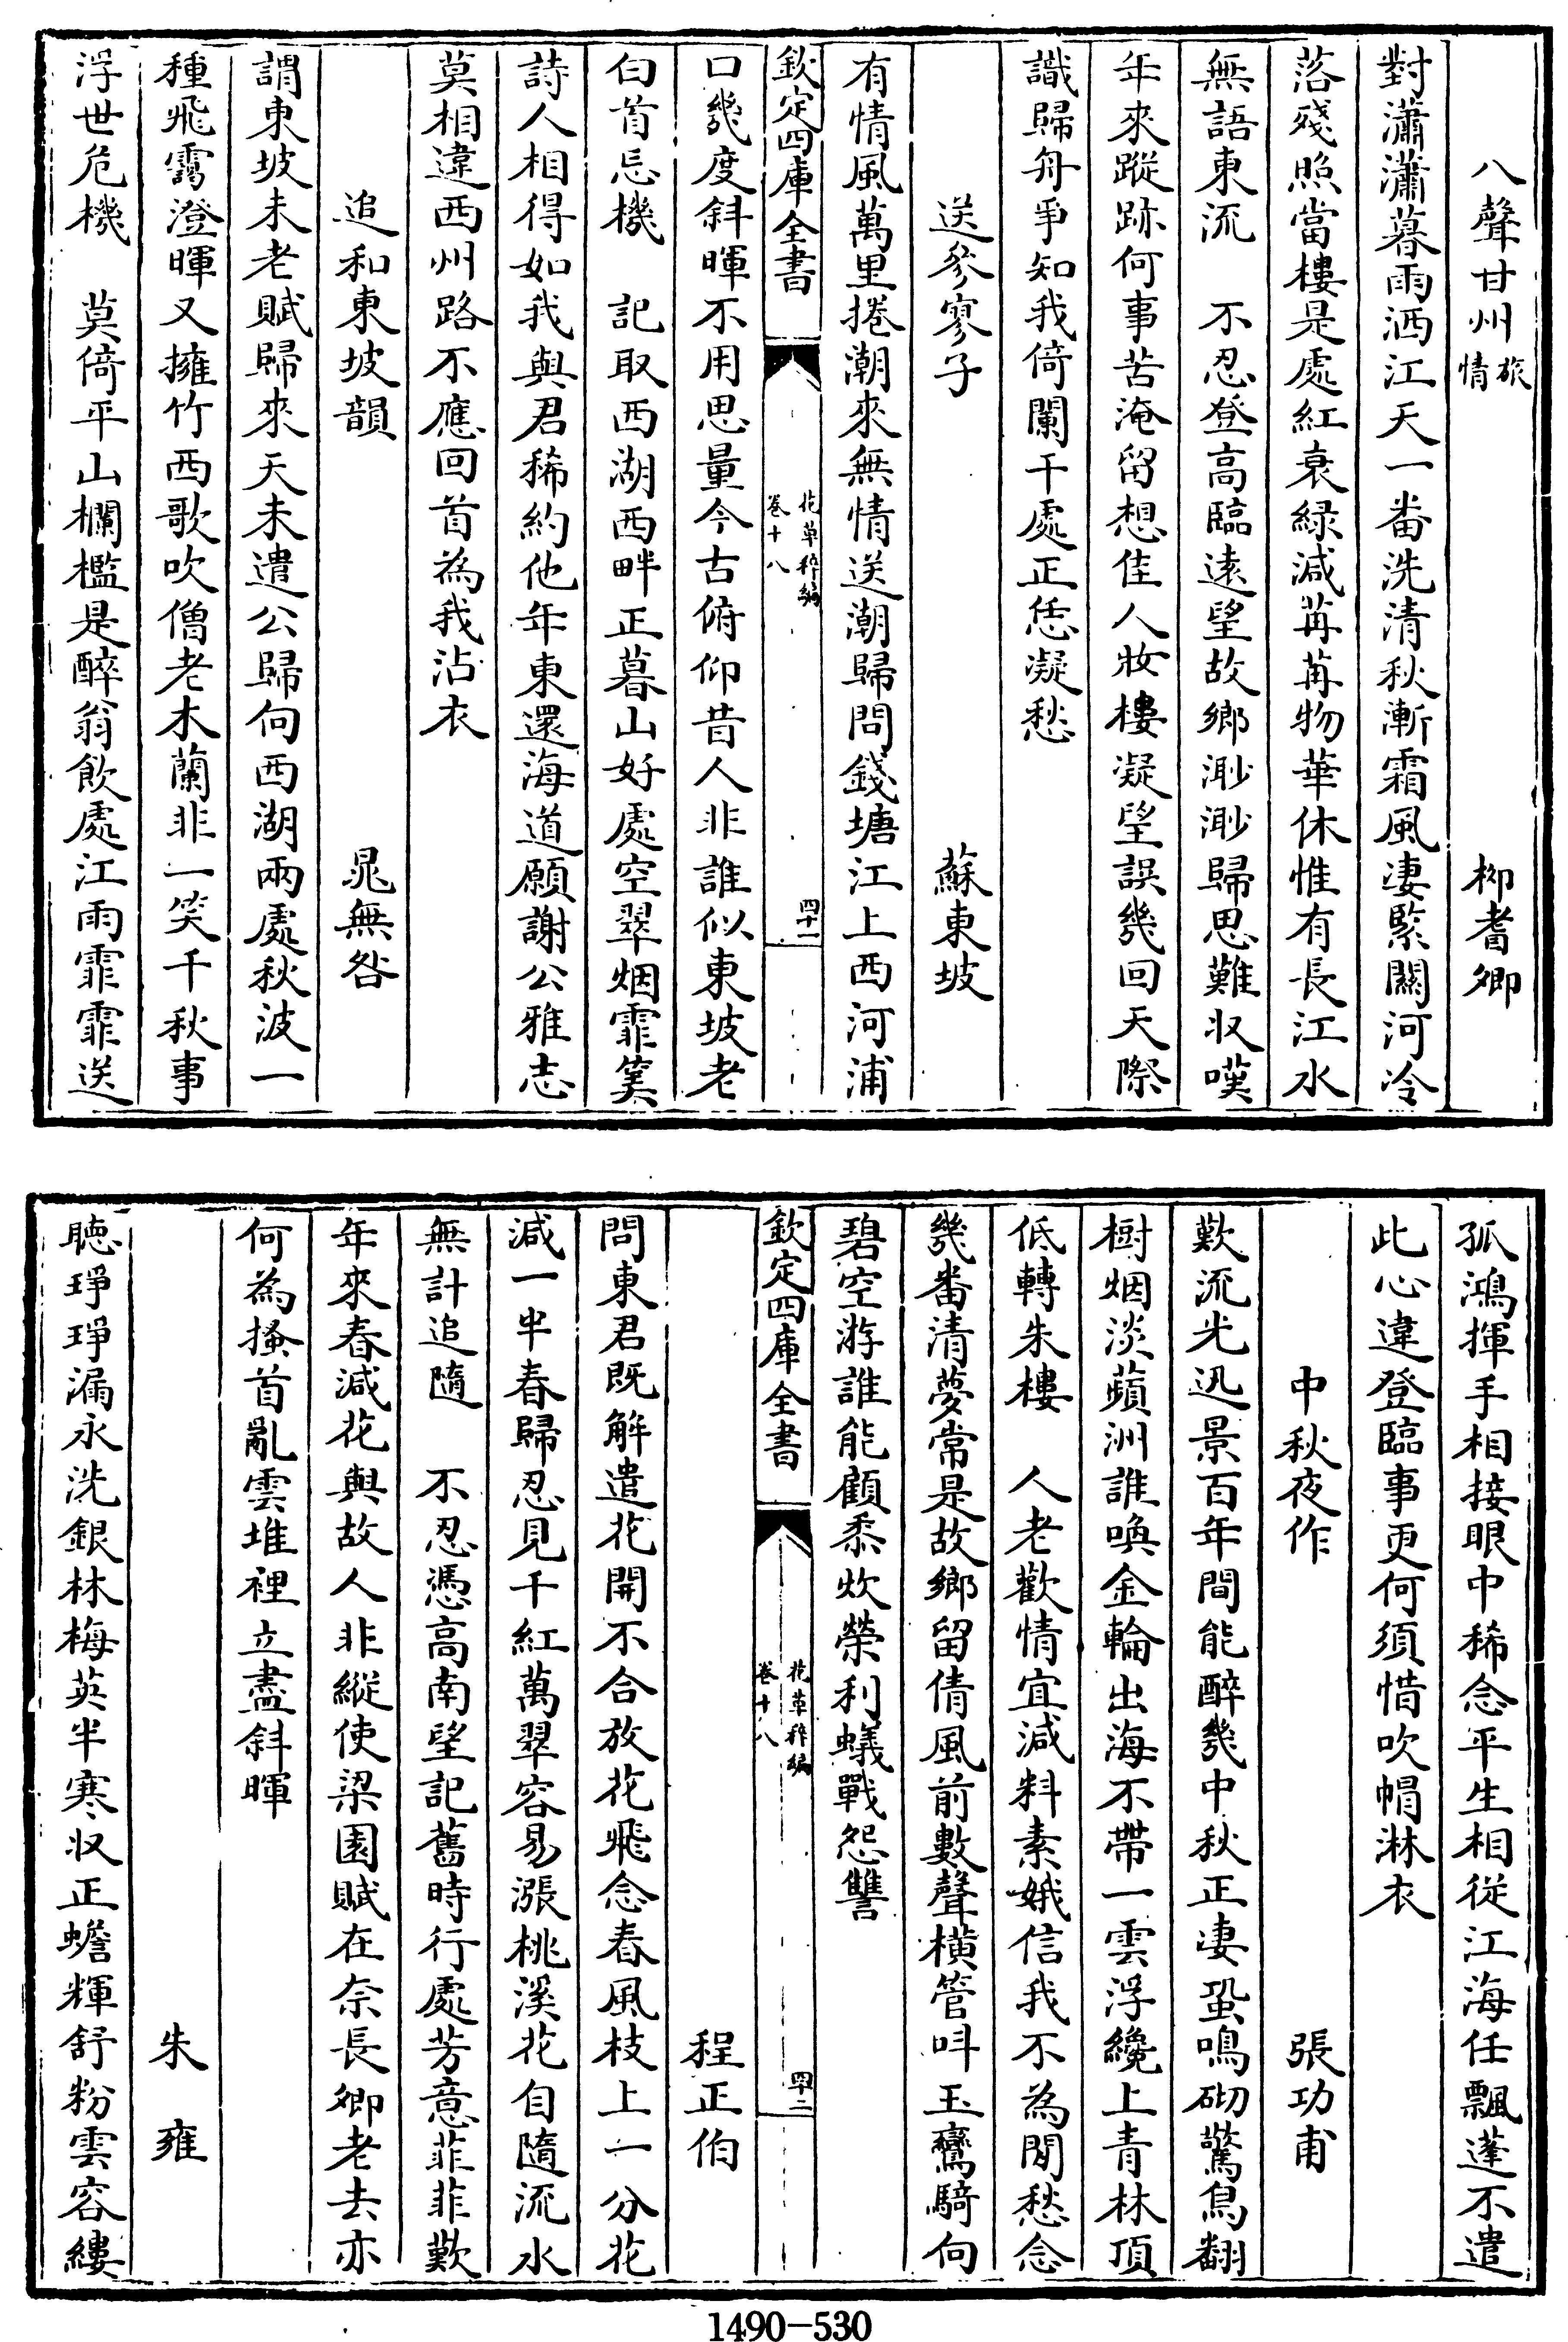 八聲甘州旅情　柳耆卿
對瀟瀟暮雨洒江天一番洗清秋漸霜風凄緊關河冷
落殘照當樓是處紅衰緑減苒苒物華休惟有長江水
無語東流　不忍登高臨遠望故鄉渺渺歸思難収嘆
年來蹤跡何事苦淹留想佳人妝樓凝望誤幾回天際
識歸舟爭知我倚闌干處正恁凝愁
送參寥子　蘇東坡
有情風萬里捲潮來無情送潮歸問錢塘江上西河浦
欽定四庫全書　花草稡編卷十八　四十一
口幾度斜暉不用思量今古俯仰昔人非誰似東坡老
白首忘機　記取西湖西畔正暮山好處空翠烟霏筭
詩人相得如我與君稀約他年東還海道願謝公雅志
莫相違西州路不應回首為我沾衣
追和東坡韻　晁無咎
謂東坡未老賦歸來天未遣公歸向西湖兩處秋波一
種飛靄澄暉又擁竹西歌吹僧老木蘭非一笑千秋事
浮世危機　莫倚平山欄檻是醉翁飲處江雨霏霏送
孤鴻揮手相接眼中稀念平生相從江海任飄蓬不遣
此心違登臨事更何須惜吹帽淋衣
中秋夜作　張功甫
歎流光迅景百年間能醉幾中秋正凄蛩鳴砌驚鳥翻
樹烟淡蘋洲誰喚金輪出海不帶一雲浮纔上青林頂
低轉朱樓　人老歡情宜減料素娥信我不為閒愁念
幾番清夢常是故鄉留倩風前數聲橫管呌玉鸞騎向
碧空游誰能顧黍炊榮利蟻戰怨讐
欽定四庫全書　花草稡編卷十八　四十二
程正伯
問東君既解遣花開不合放花飛念春風枝上一分花
減一半春歸忍見千紅萬翠容易漲桃溪花自隨流水
無計追隨　不忍憑高南望記舊時行處芳意菲菲歎
年來春減花與故人非縱使梁園賦在奈長卿老去亦
何為搔首亂雲堆裡立盡斜暉
朱雍
聽琤琤漏永洗銀林梅英半寒収正蟾輝舒粉雲容縷
1490-530